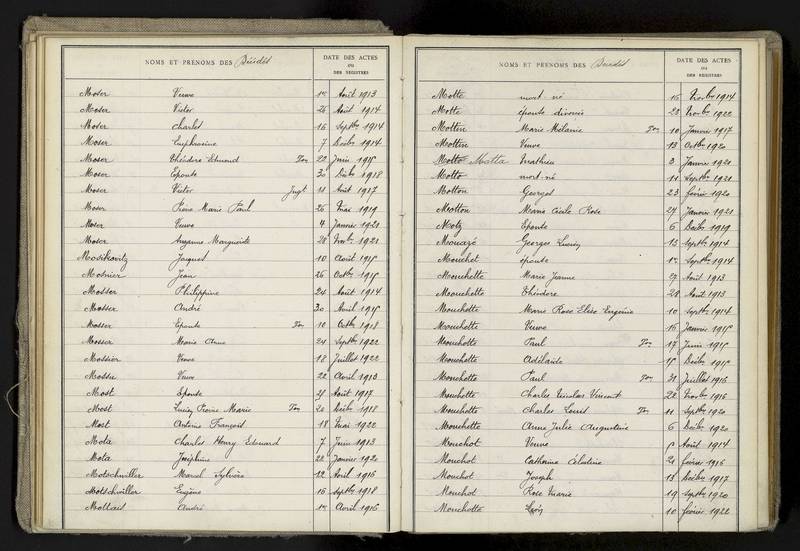 NOMS ET PRENOMS DES Décédés
DATE DES ACTES
OU
DES REGISTRES
Moser Veuve 1er Août 1913
Moser Victor 26 Août 1914
Moser Charles 16 Septbre 1914
Moser Euphrosine 7 Décbre 1914
Moser Théodore Edmond Ton 22 Juin 1915
Moser Epouse 30 Décbre 1918
Moser Victor Jugt 11 Août 1917
Moser Pierre Marie Paul 26 Mai 1919
Moser Veuve 4 Janvier 1921
Moser Suzanne Marguerite 28 Novbre 1921
Mosikovitz Jacques 10 Août 1915
Mosnier Jean 26 Octbre 1915
Mosser Philippine 24 Août 1914
Mosser André 30 Avril 1915
Mosser Epouse Ton 10 Octbre 1918
Mosser Marie Anne 24 Septbre 1922
Mossier Veuve 18 Juillet 1922
Mosser Veuve 22 Avril 1913
Most Epouse Août 1917
Most Lucien Pierre Marie Ton 20 Décbre 1918
Most Antoine François 18 Mai 1922
Mota Charles Henry Edouard 7 Juin 1913
Mota Joséphine 22 Janvier 1920
Motschviller Marcel Sylvère 12 Avril 1916
Motschwiller Eugène 16 Septbre 1918
Mottais André 1er Avril 1916
NOMS ET PRENOMS DES Décédés
DATE DES ACTES
OU
DES REGISTRES
Motte mort né 16 Novbre 1914
Motte épouse divorcée 23 Novbre 1922
Mottin Marie Mélanie Ton 10 Janvier 1917
Mottin Veuve 13 Octbre 1920
Motte Motta Mathieu 3 Janvier 1921
Motte mort-né 11 Septbre 1921
Motton Georges 23 février 1920
Motton Marie Cécile Rose 27 Janvier 1921
Motz Epouse 6 Décbre 1919
Mouazé Georges Lucien 13 Septbre 1914
Mouchet épouse 1er Septbre 1914
Mouchette Marie Jeanne 27 Août 1913
Mouchette Théodore 28 Août 1913
Mouchette Marie Rose Elise Eugénie 10 Septbre 1914
Mouchette Veuve 16 Janvier 1915
Mouchotte Paul Ton 17 Juin 1915
Mouchotte Adélaïde 15 Décbre 1915
Mouchotte Paul Ton 31 Juillet 1916
Mouchette Charles Nicolas Vincent 22 Novbre 1916
Mouchotte Charles Louis Ton 11 Septbre 1920
Mouchette Anne Julie Augustine 6 Décbre 1920
Mouchot Veuve Août 1914
Mouchot Catherine Célestine 21 février 1916
Mouchot Joseph 13 Décbre 1917
Mouchot Rose Marie 19 Septbre 1920
Mouchotte 10 février 1922